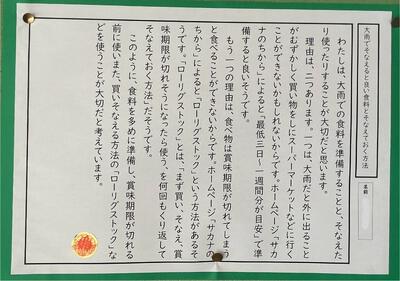 大雨でそなえると良い食料とそなえておく方法
名前
わたしは、大雨での食料を準備することと、そなえた
り使ったりすることが大切だと思います。
理由は、二つあります。一つは、大雨だと外に出ること
がむずかしく買い物をしにスーパーマーケットなどに行く
ことができないかもしれないからです。ホームページ「サカ
ナのちから」によると「最低三日～一週間分が目安」で準
備すると良いそうです。
もう一つの理由は、食べ物は賞味期限が切れてしまう
と食べることができないからです。ホームページ「サカナの
ちから」によると「ローリグストック」という方法があるそ
うです。「ローリグストック」とは、「まず買い、そなえ、賞
味期限が切れそうになったら使う。を何回もくり返して
そなえておく方法」だそうです。
このように、食料を多めに準備し、賞味期限が切れる
前に使いまた、買いそなえる方法の「ローリグストック」な
どを使うことが大切だと考えています。